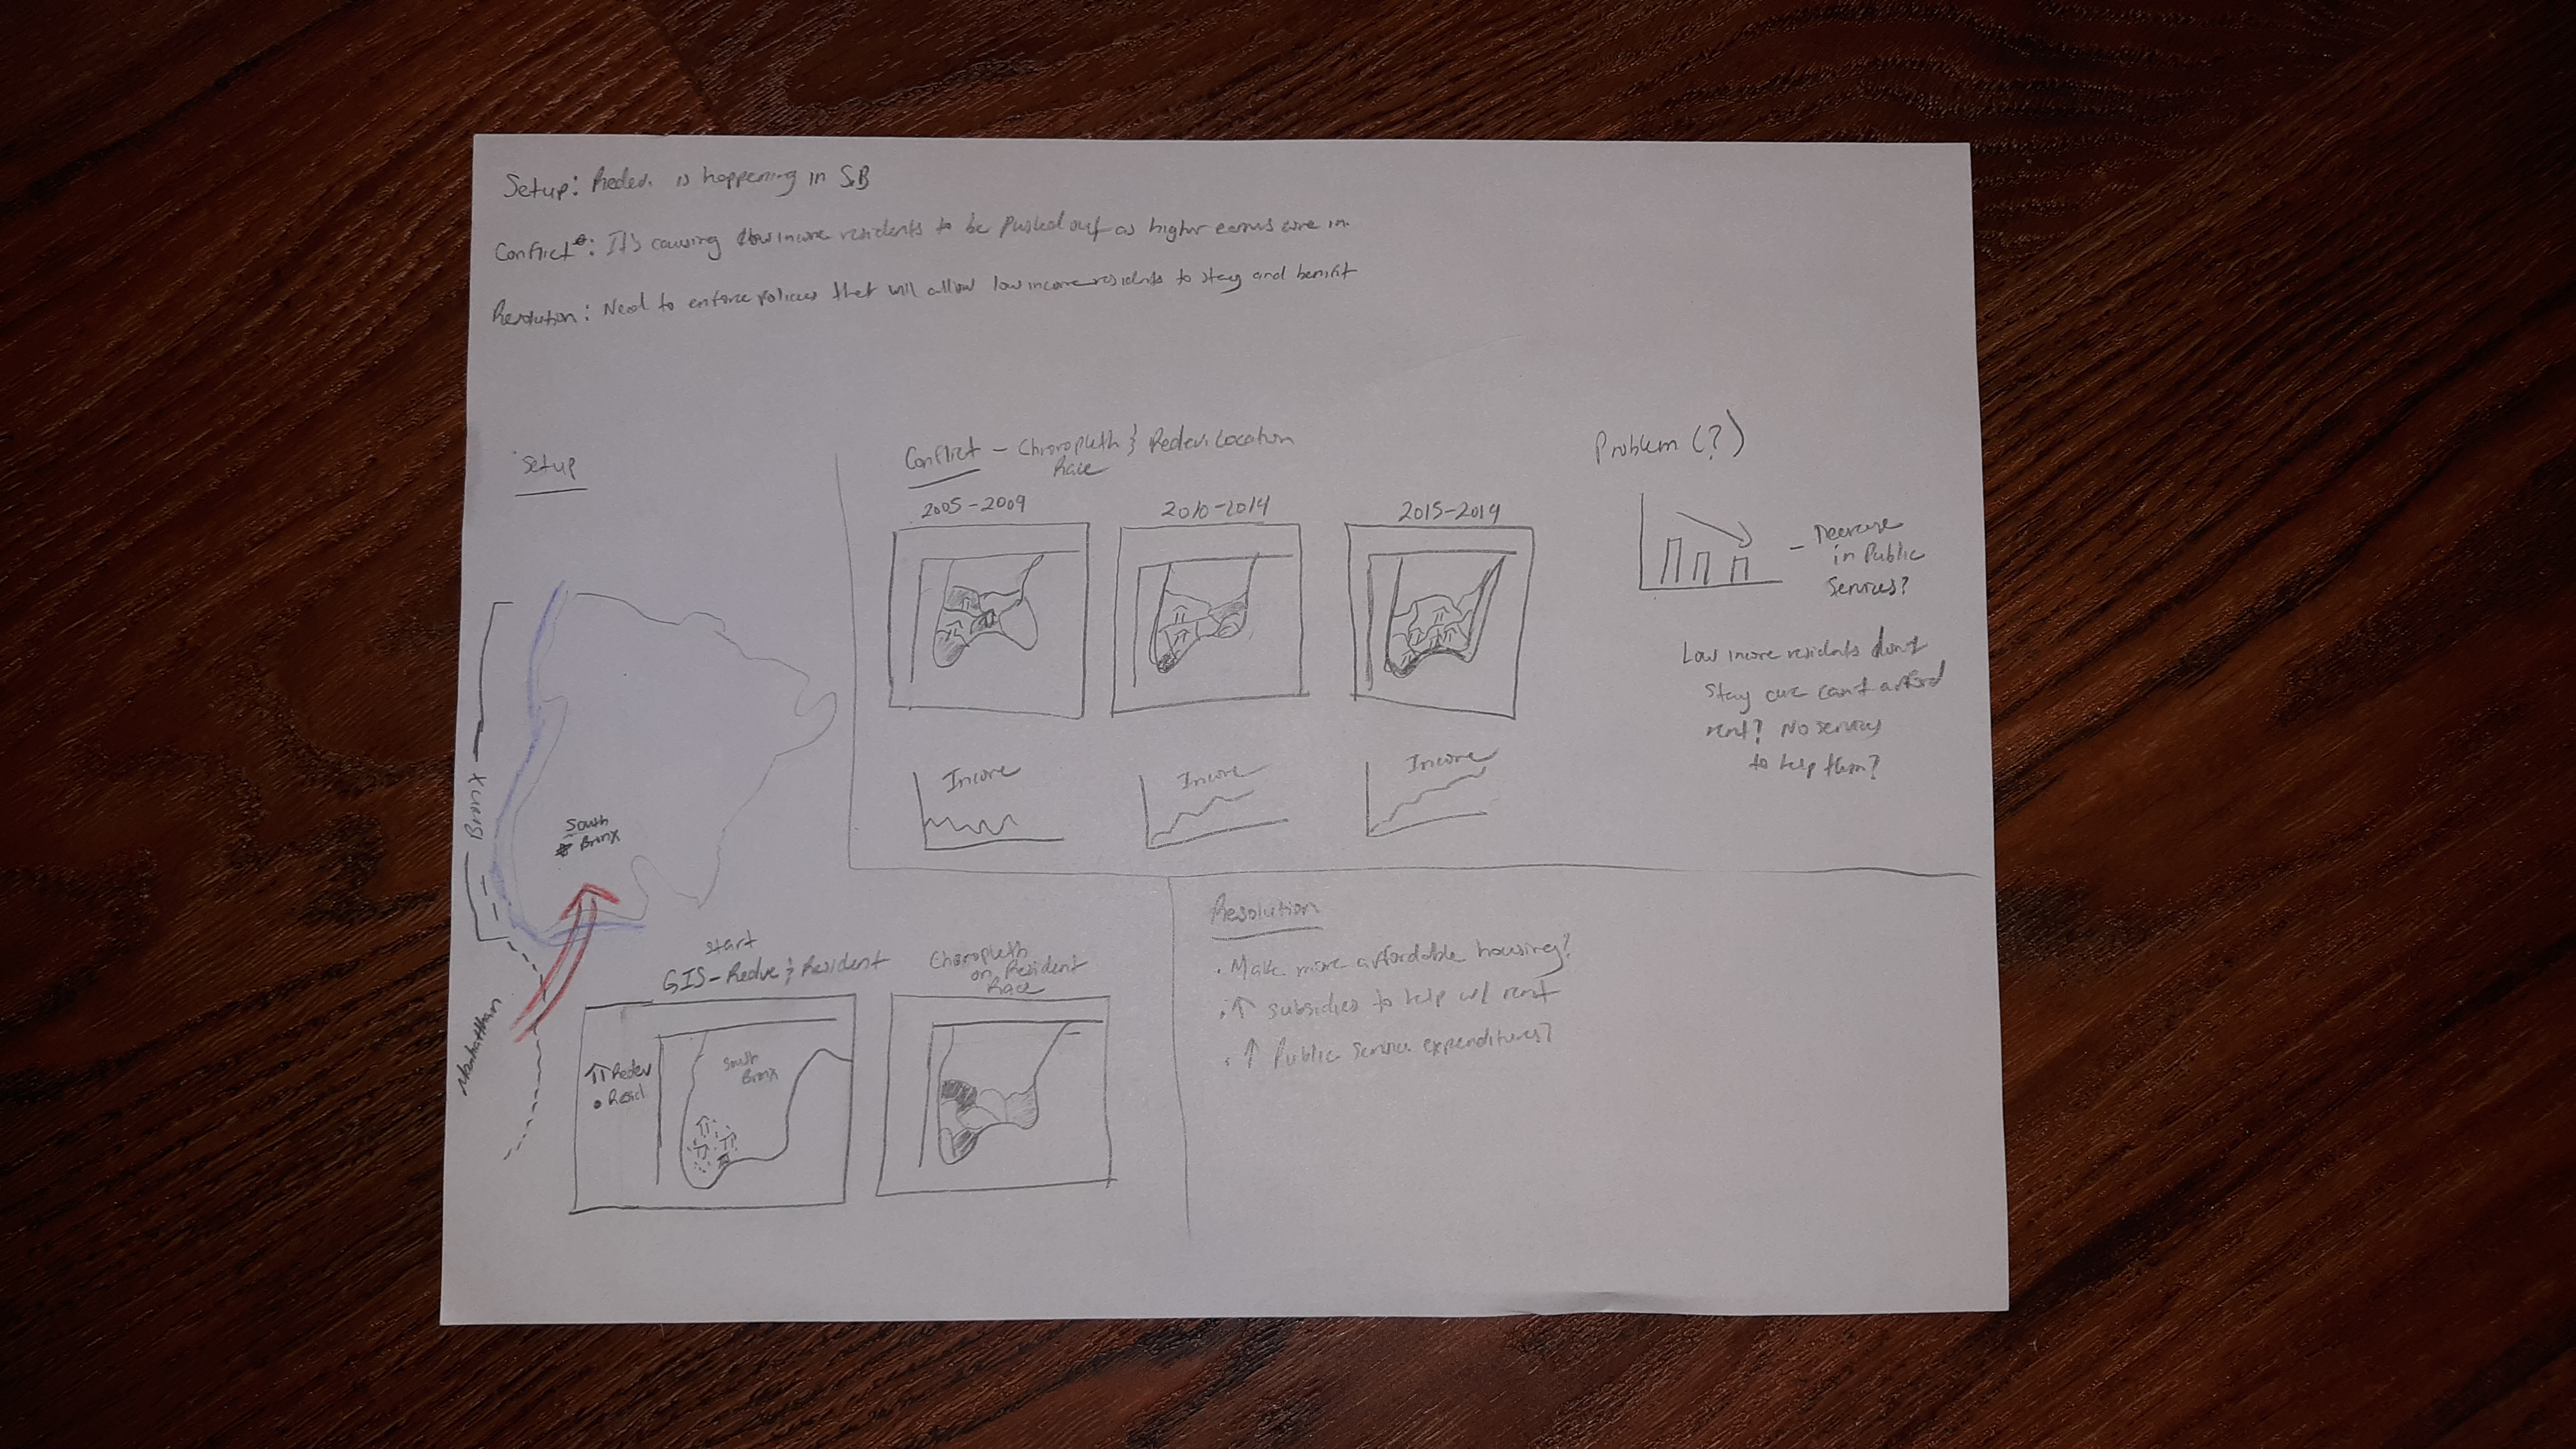 Setup: Redev. is happening in SB
Conflict: It's causing low income residents to be pushed out as higher earners come in.
Resolution: Need to enforce policies that will allow low income residents to stay and benifit
Setup
Bronx
South
Bronx
Manhattan
start
GIS - Redve & Resident
Redev
Resid
South
Bronx
Choropleth
on Resident
Race
Conflict - Chroropleth & Redev. Location
Race
2005-2009
2010-2014
2015-2019
Income
Income
Income
Problem (?)
- Decrease
in Public
Services?
Low income residents don't
stay cuz can't afford
rent? No services
to help them?
Resolution
• Make more affordable housing?
• ↑ subsidies to help w/ rent
• ↑ Public service expenditures?